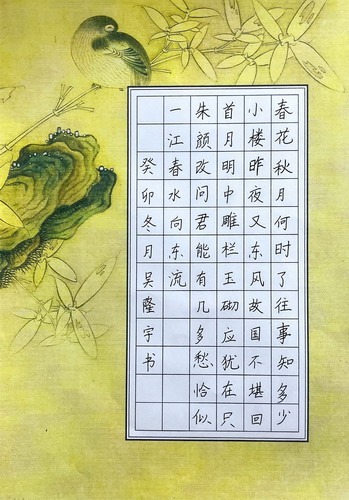 春花秋月何时了往事知多少
小楼昨夜又东风故国不堪回
首月明中雕栏玉砌应犹在只
朱颜改问君能有几多愁恰似
一江春水向东流
癸卯冬月吴隆宇书